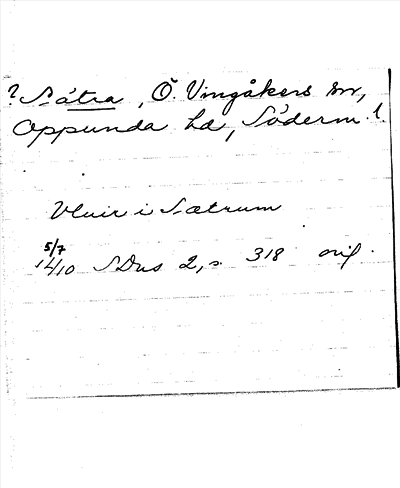 ? Sätra, Ö. Vingåkers sn,
Oppunda hd, Söderm. l.
Vluir i Sætrum
5/7
14/10 SDns 2, s. 318 orig.